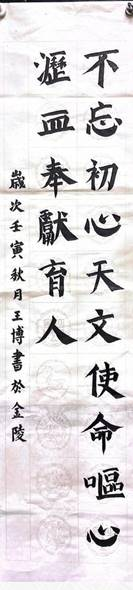 不忘初心天文使命嘔心
瀝血奉獻育人
歲次壬寅秋月王博書於金陵